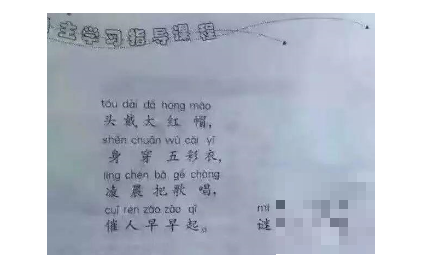 主学习指导课程
tóu dài dà hóng mào
头戴大红帽，
shēn chuān wǔ cǎi yī
身穿五彩衣，
líng chén bǎ gē chàng
凌晨把歌唱，
cuī rén zǎo zǎo qǐ
催人早早起。
mí
谜